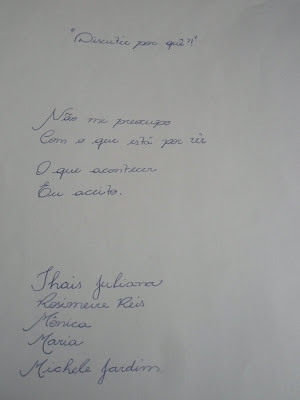 "Discutir por quê?!"
Não me preocupo
Com o que está por vir
O que acontecer
Eu aceito.
Thais Juliana
Rosimeire Reis
Mônica
Maria
Michele Jardim